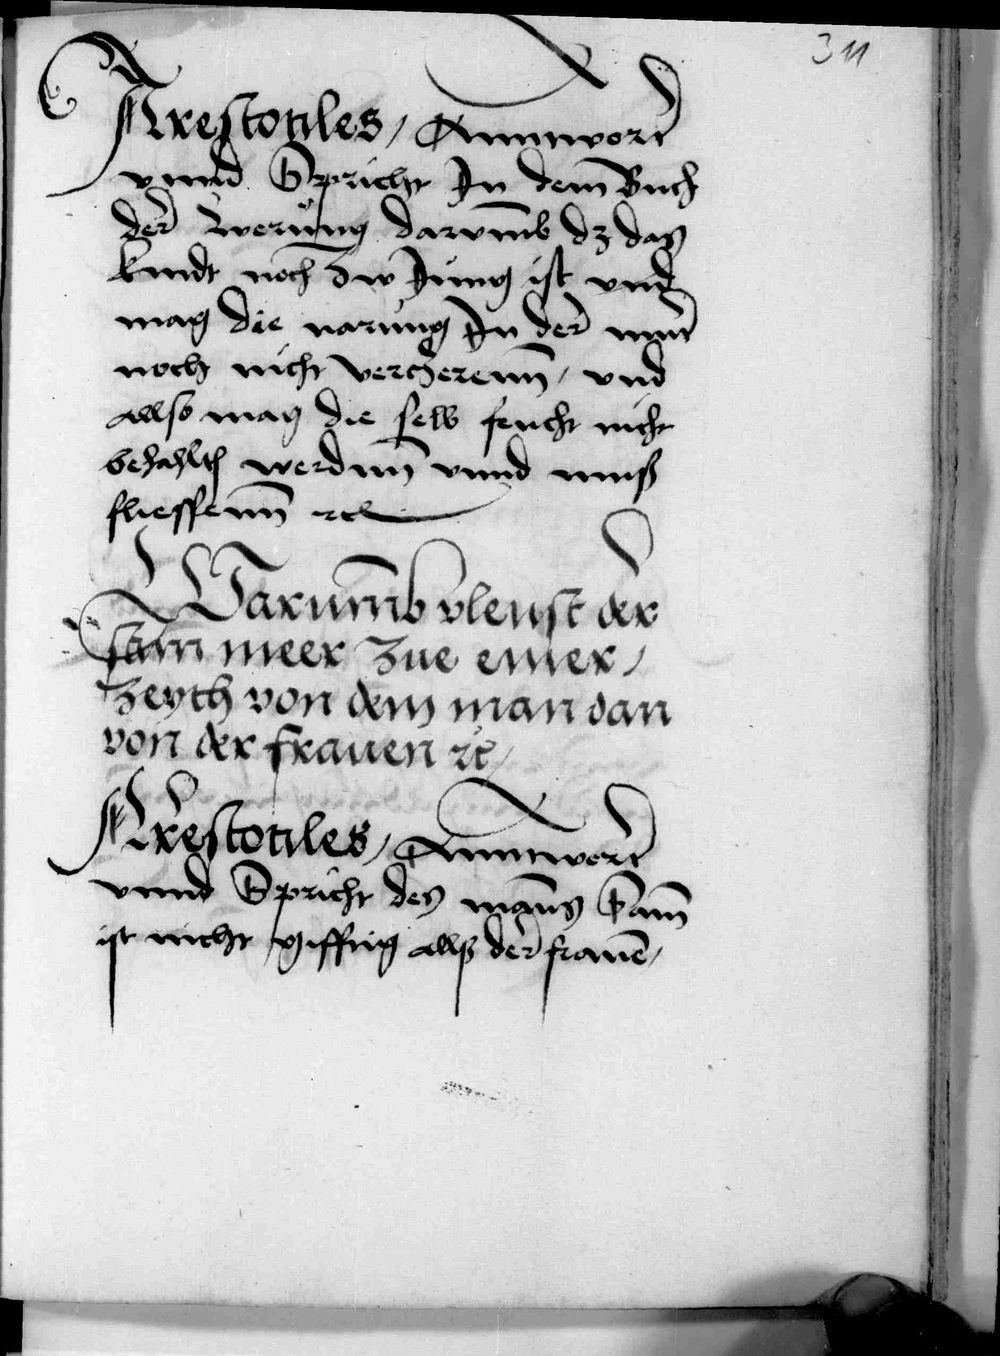 311
Arestotiles / Anntwort
vnnd Spricht In dem Buch
der Zwerung darvmb dz das
kindt noch Zw Jung ist vnd
mag die narung In der mutter
noch nicht verzerenn / vnd
allso mag die selb feucht nicht
behalten werdnn vnnd muß
fliessenn ꝛc
Warumb vleust der
sam meer Zue einer /
Zeyth von dem man dan
von der frauen ꝛc /
Arestotiles / Anntwort
vnnd Spricht des manns Sam
ist nicht giffttig allß der frauē /